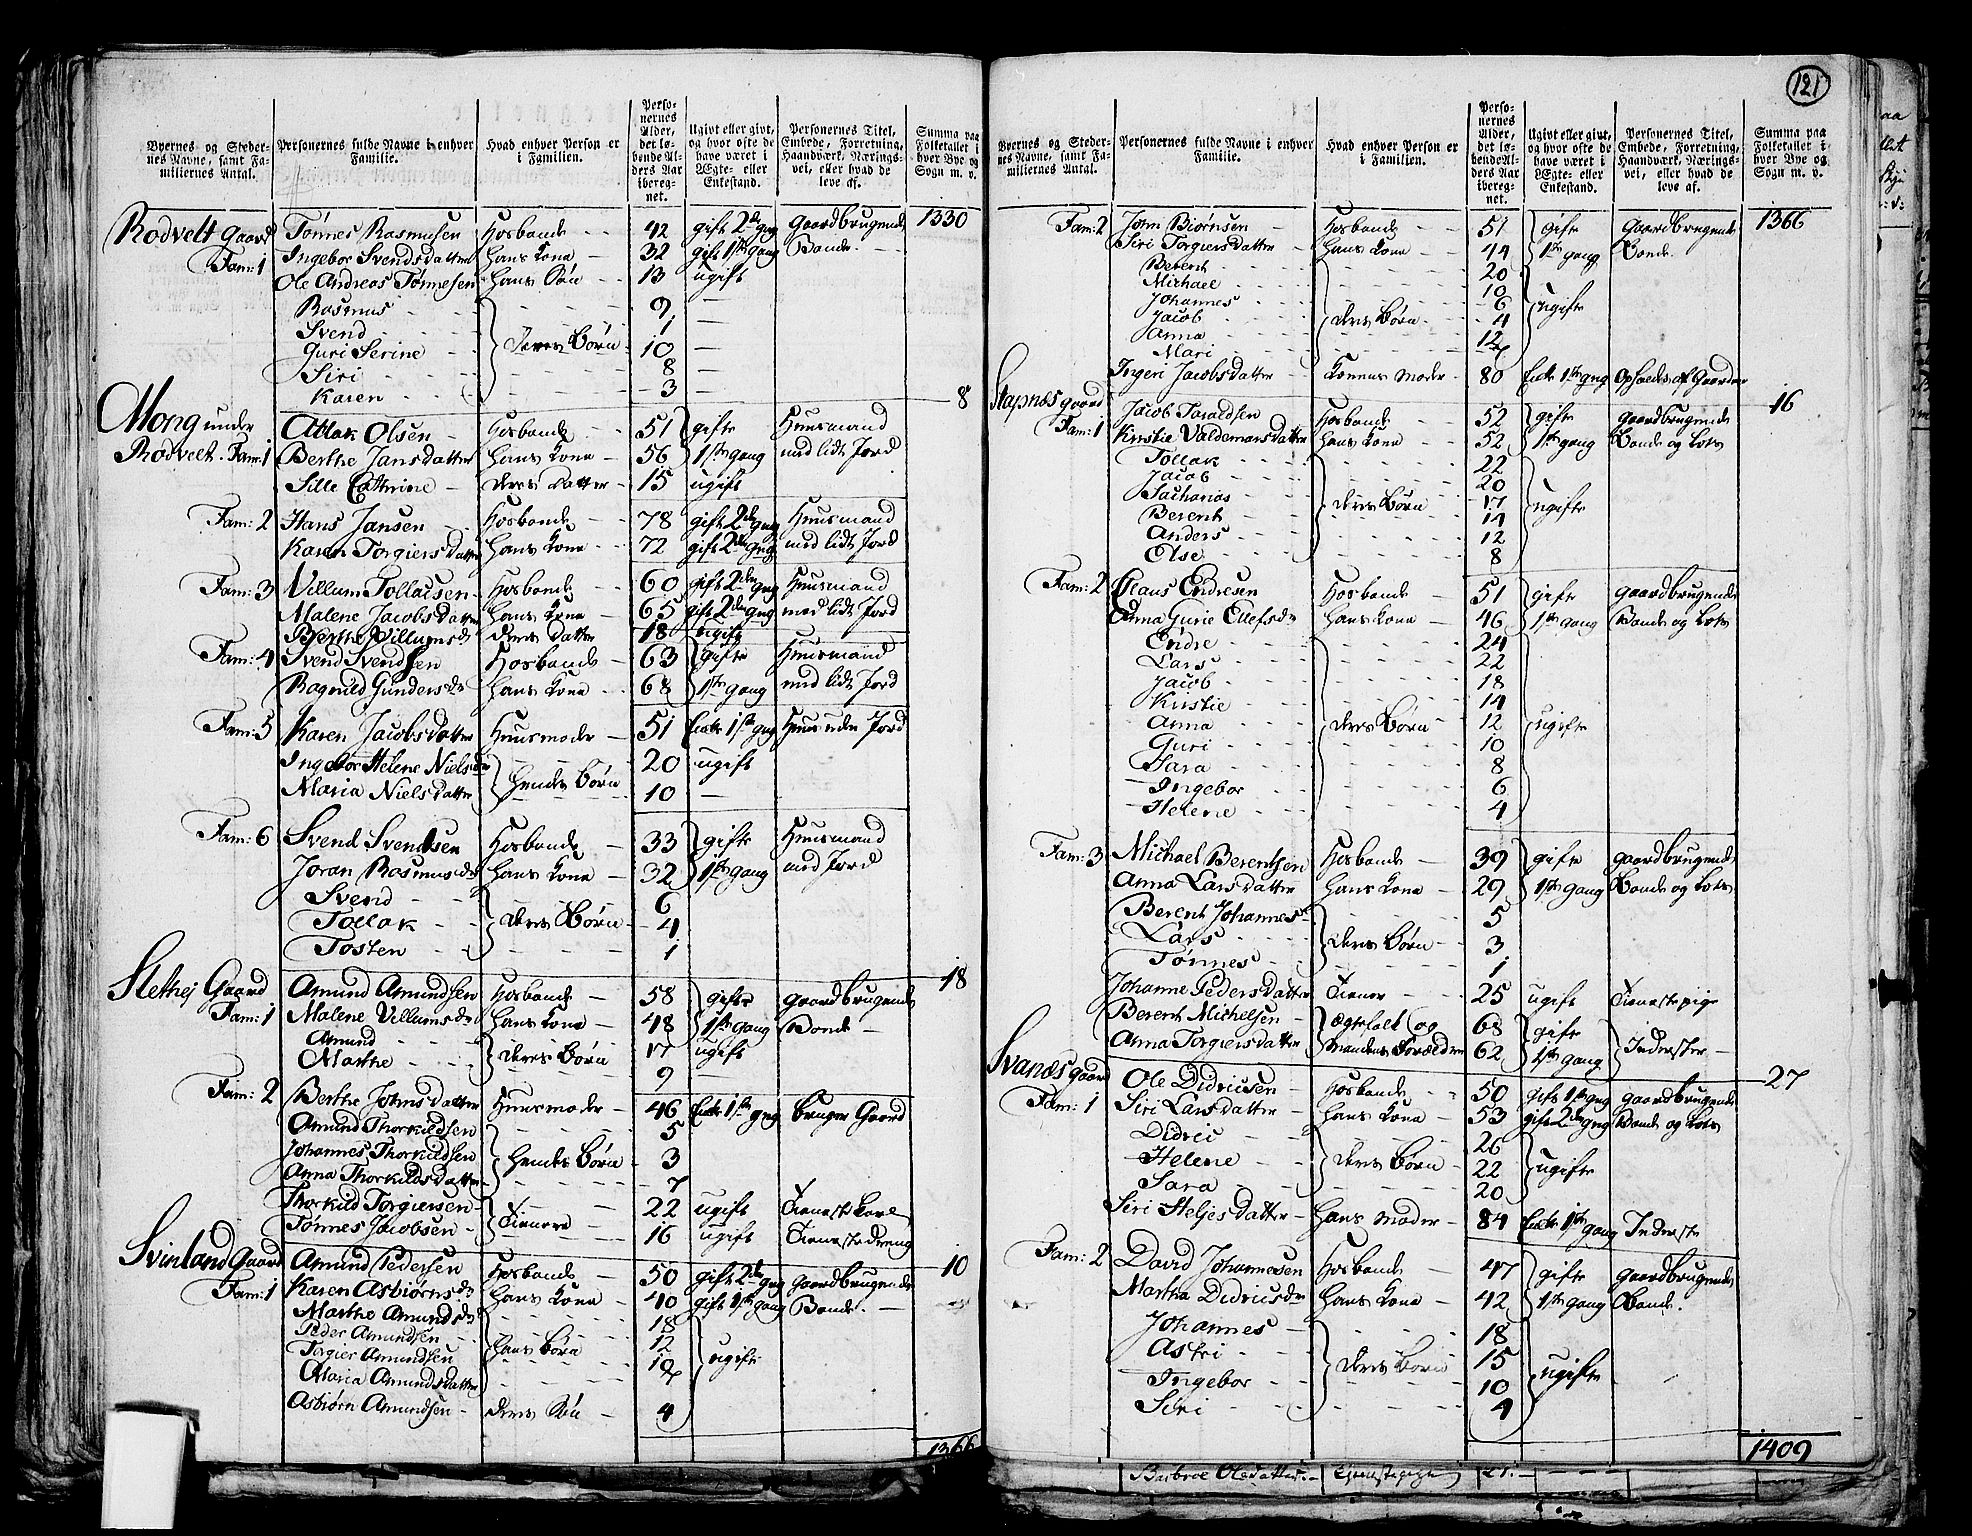 121
Byernes og Stedernes Navne, samt Familiernes Antal.
Personernes fulde Navne i enhver Familie.
Hvad enhver Person er i Familien.
Personernes Alder, det løbende Alders Aar iberegnet.
Ugivt eller givt, og hvor ofte de have været i Ægte- eller Enkestand.
Personernes Titel, Embede, Forretning, Haandværk, Næringsvei, eller hvad de leve af.
Summa paa Folketallet i hver Bye og Sogn m. v.
Rodvelt Gaard Tønnes Rasmusen Hosbonde 42 gift 2de gng Gaardbrugende 1330
Fam: 1 Ingebor Svendsdatter Hans Kona 32 gift 1ste gang Bonde
Ole Andreas Tønnesen Hans Søn 13 ugift
Rasmus 9 —
Svend 1 —
Guri Serine Deres Børn 10 —
Siri 8 —
Karen 3 — 8
Mong under Atlak Olsen Hosbonde 51 gifte Huusmand
Rodvelt. Fam: 1 Berthe Jansdatter Hans Kona 56 1ste gang med lidt Jord
Sille Cathrine Deres Datter 15 ugift
Fam: 2 Hans Jansen Hosbonde 78 gift 2de gng Huusmand
Karen Torgiersdatter Hans Kona 72 gift 2de gng med lidt Jord
Fam: 3 Villum Tollacsen Hosbonde 60 gift 2den gng Huusmand
Malene Jacobsdatter Hans Kona 65 gift 2den gng med lidt Jord
Berthe Villumsdr Deres Datter 18 ugift
Fam: 4 Svend Svendsen Hosbonde 63 gifte Huusmand
Ragnild Gundersdr Hans Kona 68 1ste gang med lidt Jord
Fam: 5 Karen Jacobsdatter Huusmoder 51 Enke 1ste gng Huus uden Jord
Ingebor Helene Nielsdr 20 ugift
Maria Nielsdatter Hendes Børn 10 —
Fam: 6 Svend Svendsen Hosbonde 33 gifte Huusmand
Joran Rasmusdr Hans Kona 32 1ste gang med Jord
Svend 6
Tollak Deres Børn 4
Tosten 1 18
Slethej Gaard Amund Amundsen Hosbonde 58 gifte Gaardbrugende
Fam: 1 Malene Villumsdr Hans Kona 48 1ste gang Bonde
Amund Deres Børn 17 ugift
Marthe 9 —
Fam: 2 Berthe Johnsdatter Huusmoder 46 Enke 1ste gng bruger Gaard
Amund Thorkildsen 5
Johannes Thorkildsen Hendes Børn 3
Anna Thorkildsdatter 7
Thorkild Torgiersen Tienere 22 ugift Tieneste Karl
Tønnes Jacobsen 16 ugift Tienestedreng
Svinland Gaard Amund Pedersen Hosbonde 50 gift 2de gng Gaardbrugende 10
Fam: 1 Karen Asbiørnsdr Hans Kona 40 gift 1ste gang Bonde
Marthe Amundsdr 18
Peder Amundsen 12
Torgier Amundsen Hans Børn 12 ugift
Maria Amundsdatter
Asbiørn Amundsen Deres Søn 4
1366
Byernes og Stedernes Navne, samt Familiernes Antal.
Personernes fulde Navne i enhver Familie.
Hvad enhver Person er i Familien.
Personernes Alder, det løbende Alders Aar iberegnet.
Ugivt eller givt, og hvor ofte de have været i Ægte- eller Enkestand.
Personernes Titel, Embede, Forretning, Haandværk, Næringsvei, eller hvad de leve af.
Summa paa Folketallet i hver Bye og Sogn m. v.
Fam: 2 John Biørnsen Hosbonde 51 gifte Gaardbrugende 1366
Siri Torgiersdatter Hans Kona 44 1ste gang Bonde
Berent 20
Michael 10
Johannes 6 ugifte
Jacob Deres Børn 4
Anna 12
Mari
Ingeri Jacobsdatter Konens Moder 80 Enke 1ste gng Opholds af Gaarden
Stapnes gaard Jacob Taraldsen Hosbonde 52 gifte Gaardbrugende 16
Fam: 1 Kirstie Valdemarsdatter Hans Kona 52 1ste gang Bonde og Lots
Tollak 22
Jacob 20
Sacharias Deres Børn 17 ugifte
Berent 14
Anders 12
Else 8
Fam: 2 Claus Endresen Hosbonde 51 gifte Gaardbrugende
Anna Gurie Ellefsdr Hans Kona 46 1ste gang Bonde og Lots
Endre 24
Lars 22
Jacob 18
Kirstie 14
Anna Deres Børn 12 ugifte
Guri 10
Sara 8
Ingebor 6
Helene 4
Fam: 3 Michael Berentsen Hosbonde 39 gifte Gaardbrugende
Anna Larsdatter Hans Kona 29 1ste gang Bonde og Lots
Berent Johannes 5
Lars Deres Børn 3
Tønnes 1
Johanne Pedersdatter Tiener 25 ugift Tienestepige
Berent Michelsen Ægtefolk og 68 gifte Inderster
Anna Torgiersdatter Mandens Forældre 62 1ste gang
Svanæs gaard Ole Didricsen Hosbonde 50 gift 1ste gng Gaardbrugende 27
Fam: 1 Siri Larsdatter Hans Kona 53 gift 2de gng Bonde og Lots
Didric 26
Helene Deres Børn 22 ugifte
Sara 20
Siri Heljesdatter Hans Moder 84 Enke 1ste gang Inderste
Fam: 2 David Johannesen Hosbonde 47 gifte Gaardbrugende
Martha Didricsdr Hans Kona 42 1ste gang Bonde.
Johannes 18
Astri Deres Børn 15 ugifte
Ingebor 10
Siri 4
1409
Barbroe Olsdatter Tjenestepige 21